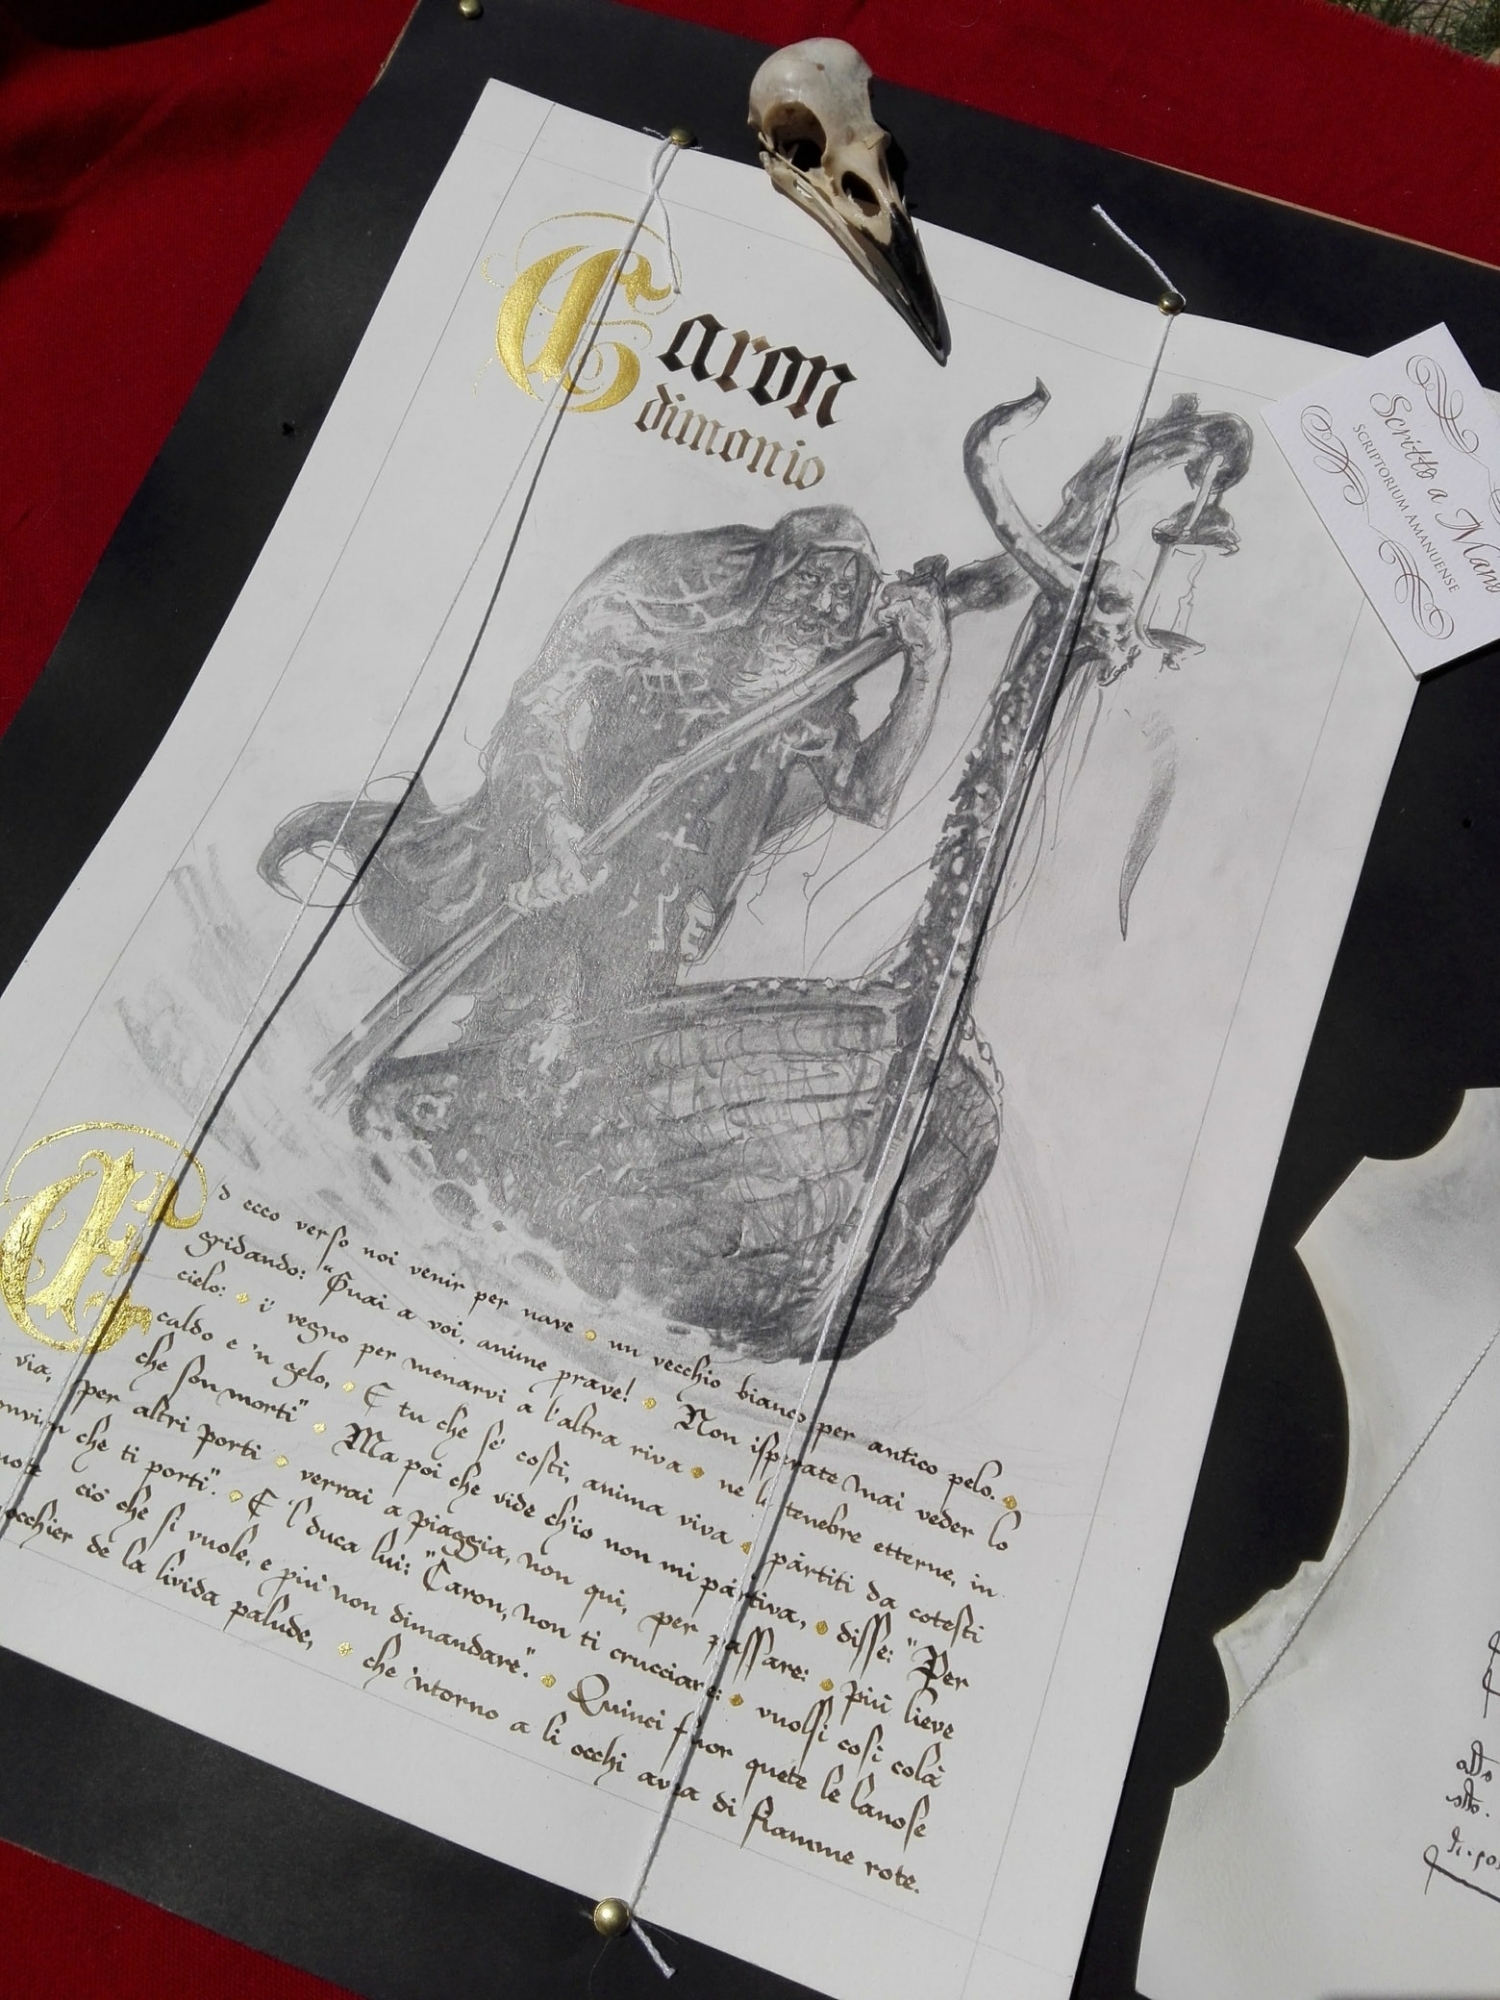 Caron
dimonio
Scritto a Mano
SCRIPTORIUM AMANUENSE
Ed ecco verso noi venir per nave • un vecchio bianco per antico pelo. •
gridando: "Guai a voi, anime prave! • Non isperate mai veder lo
cielo: • i' vegno per menarvi a l'altra riva • ne le tenebre etterne, in
caldo e 'n gelo, • E tu che se' costì, anima viva • pàrtiti da cotesti
che son morti" • Ma poi che vide ch'io non mi partiva, • disse: "Per
via, per altri porti • verrai a piaggia, non qui, per passare: • più lieve
che ti porti". • E 'l duca lui: "Caron, non ti crucciare: • vuolsi così colà
ciò che si vuole, e più non dimandare". • Quinci fuor quete le lanose
de la livida palude, • che 'ntorno a li occhi avea di fiamme rote.